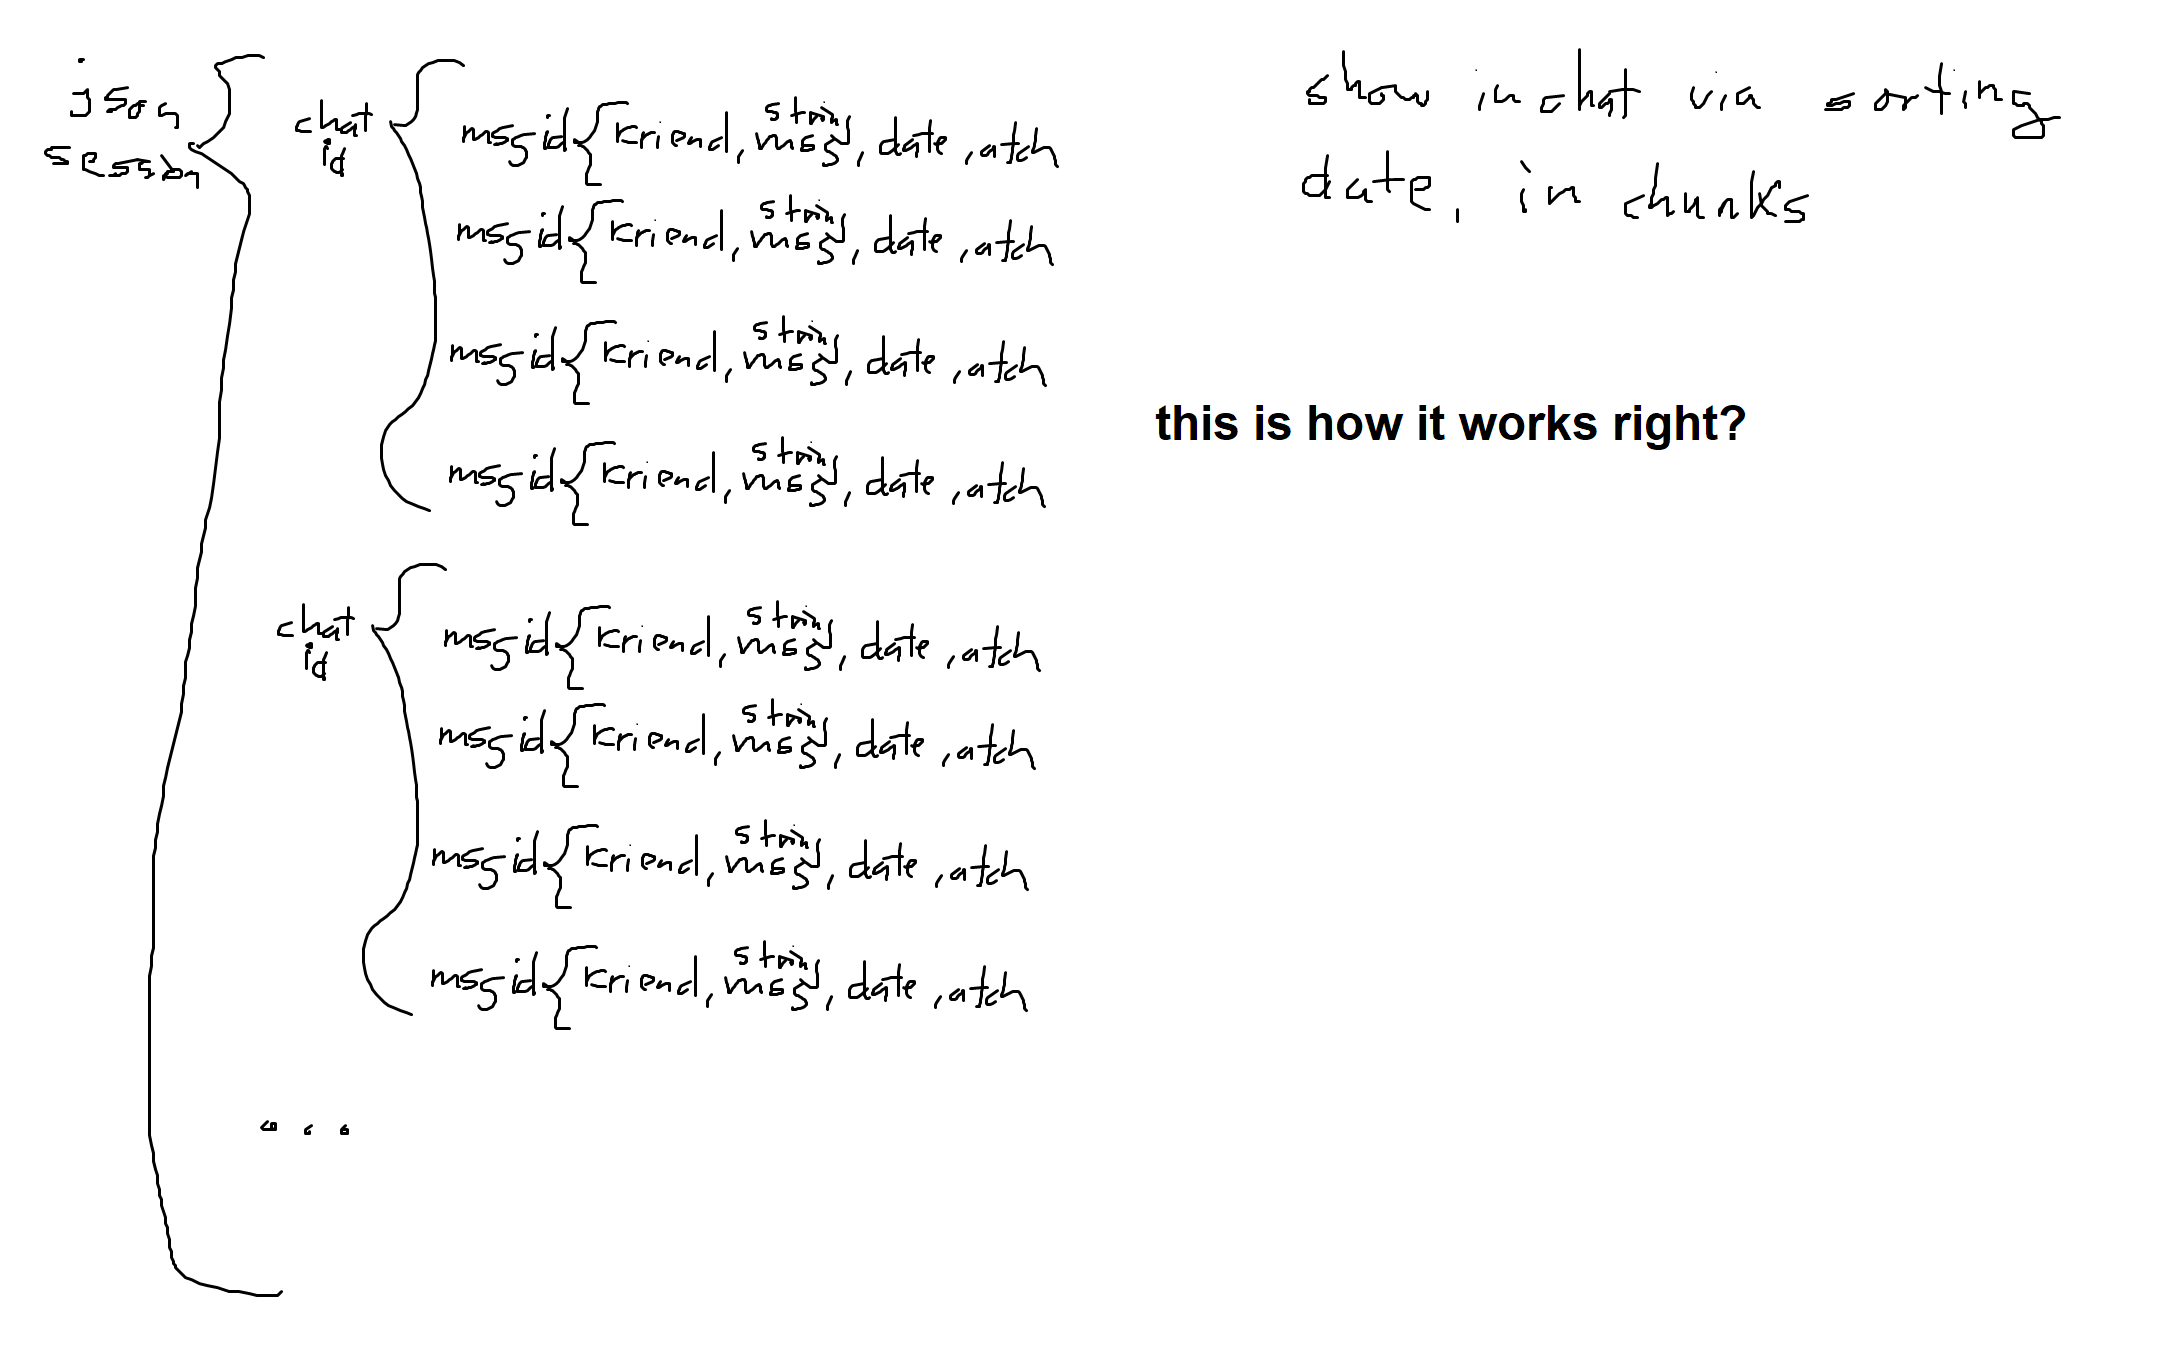 json
session
chat
id
msg id { Kriend, string msg, date, atch
msg id { Kriend, string msg, date, atch
msg id { Kriend, string msg, date, atch
msg id { Kriend, string msg, date, atch
chat
id
msg id { Kriend, string msg, date, atch
msg id { Kriend, string msg, date, atch
msg id { Kriend, string msg, date, atch
msg id { Kriend, string msg, date, atch
...
show in chat via sorting
date, in chunks
this is how it works right?